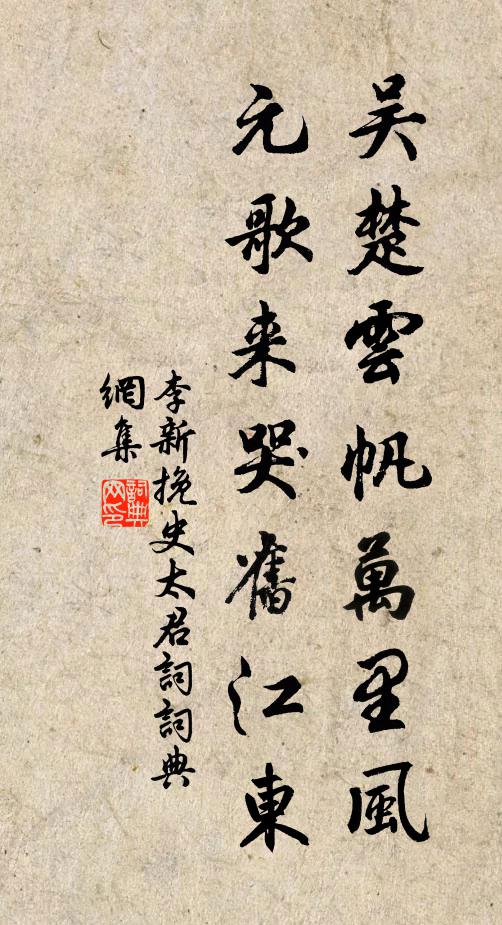 吴楚雲帆萬里風
元歌来哭舊江東
李新挽史太君詞詞典
網集
詞典网印